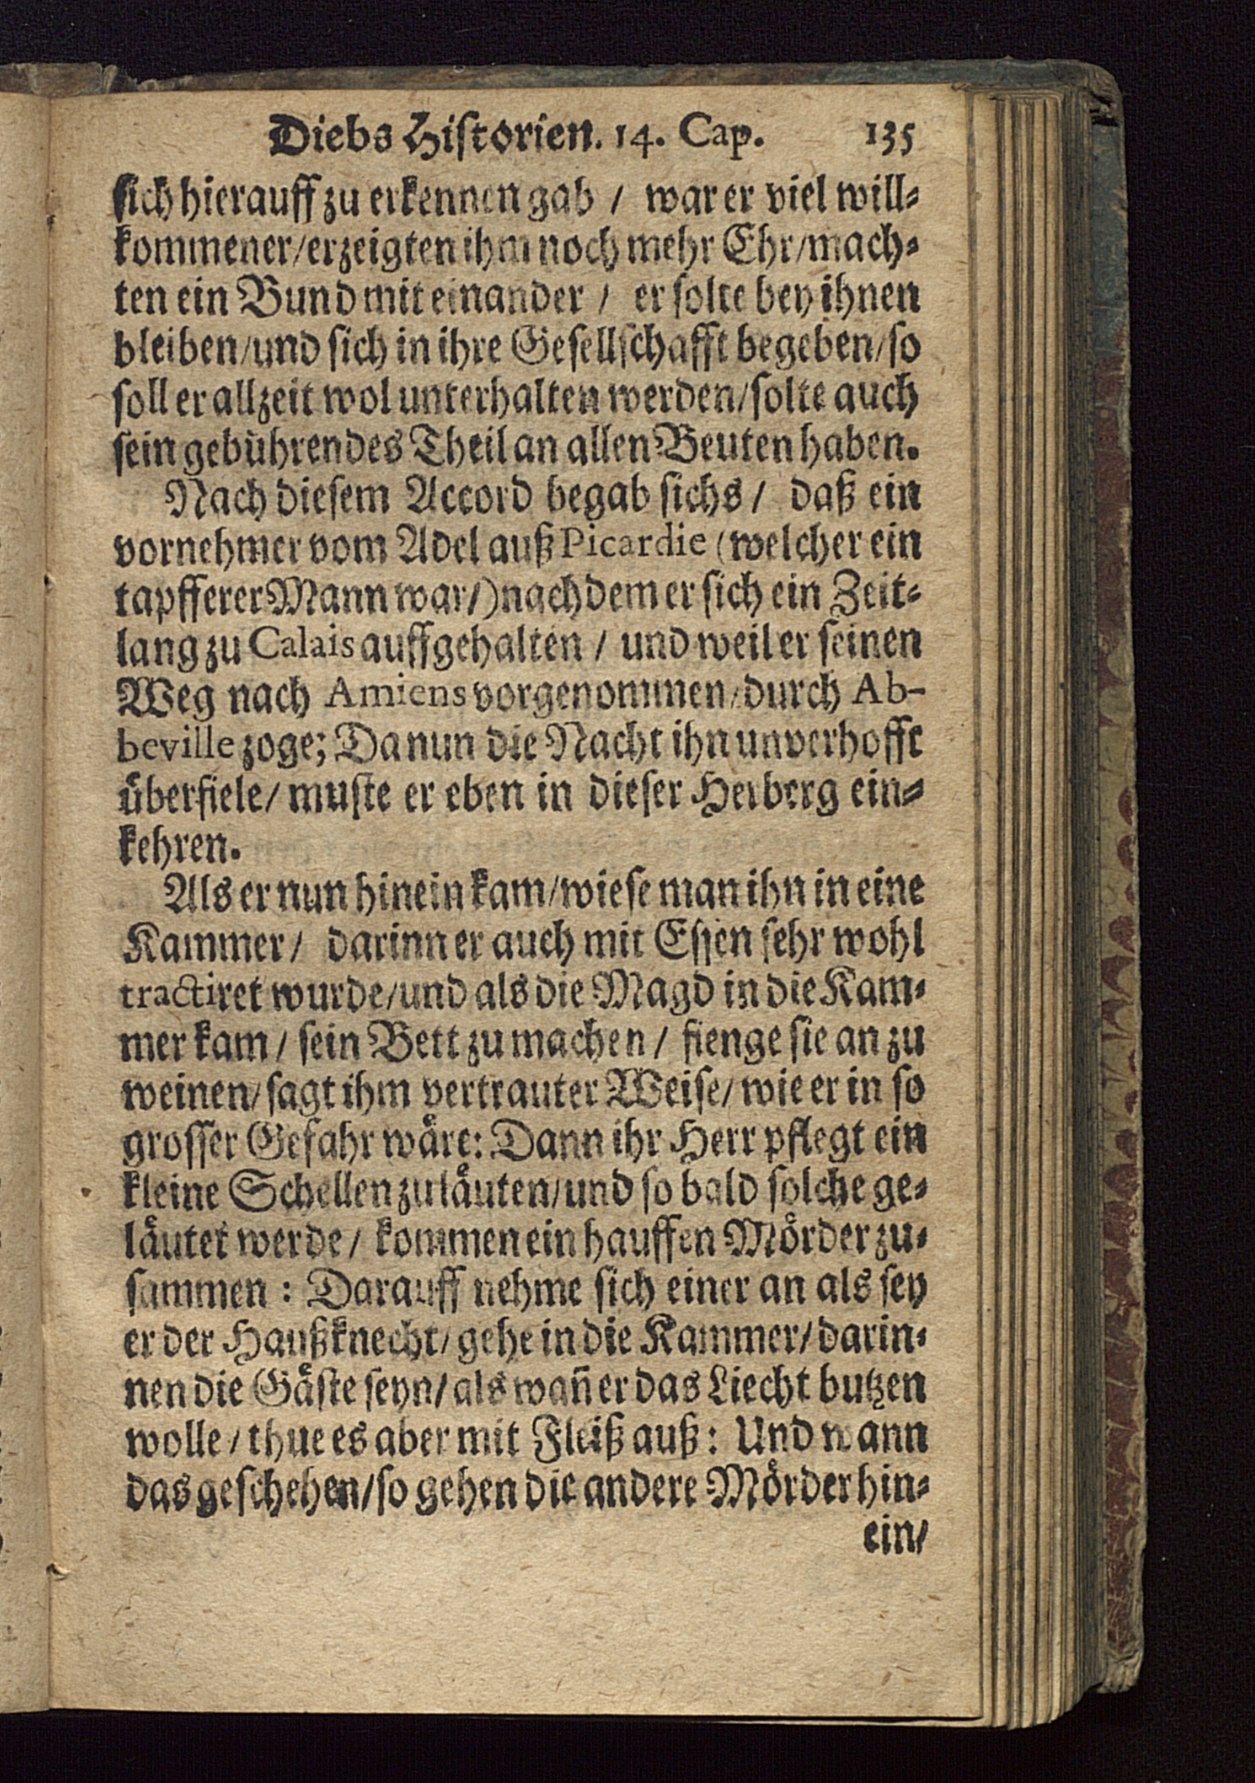 Diebs Historien. 14. Cap. 135
sich hierauff zu erkennen gab / war er viel will⸗
kommener/erzeigten ihm noch mehr Ehr/mach⸗
ten ein Bund mit einander / er solte bey ihnen
bleiben/und sich in ihre Gesellschafft begeben/so
soll er allzeit wol unterhalten werden/solte auch
sein gebührendes Theil an allen Beuten haben.
Nach diesem Accord begab sichs / daß ein
vornehmer vom Adel auß Picardie (welcher ein
tapfferer Mann war/) nachdem er sich ein Zeit⸗
lang zu Calais auffgehalten / und weil er seinen
Weg nach Amiens vorgenommen/durch Ab-
beville zoge; Da nun die Nacht ihn unverhofft
überfiele/ muste er eben in dieser Herberg ein⸗
kehren.
Als er nun hinein kam/wiese man ihn in eine
Kammer/ darinn er auch mit Essen sehr wohl
tractiret wurde/und als die Magd in die Kam⸗
mer kam / sein Bett zu machen / fienge sie an zu
weinen/sagt ihm vertrauter Weise/wie er in so
grosser Gefahr wäre: Dann ihr Herr pflegt ein
kleine Schellen zuläuten/und so bald solche ge⸗
läutet werde / kommen ein hauffen Mörder zu⸗
sammen : Darauff nehme sich einer an als sey
er der Haußknecht/gehe in die Kammer/darin⸗
nen die Gäste seyn/als wañ er das Liecht butzen
wolle / thue es aber mit Fleiß auß : Und wann
das geschehen/so gehen die andere Mörder hin⸗
ein/